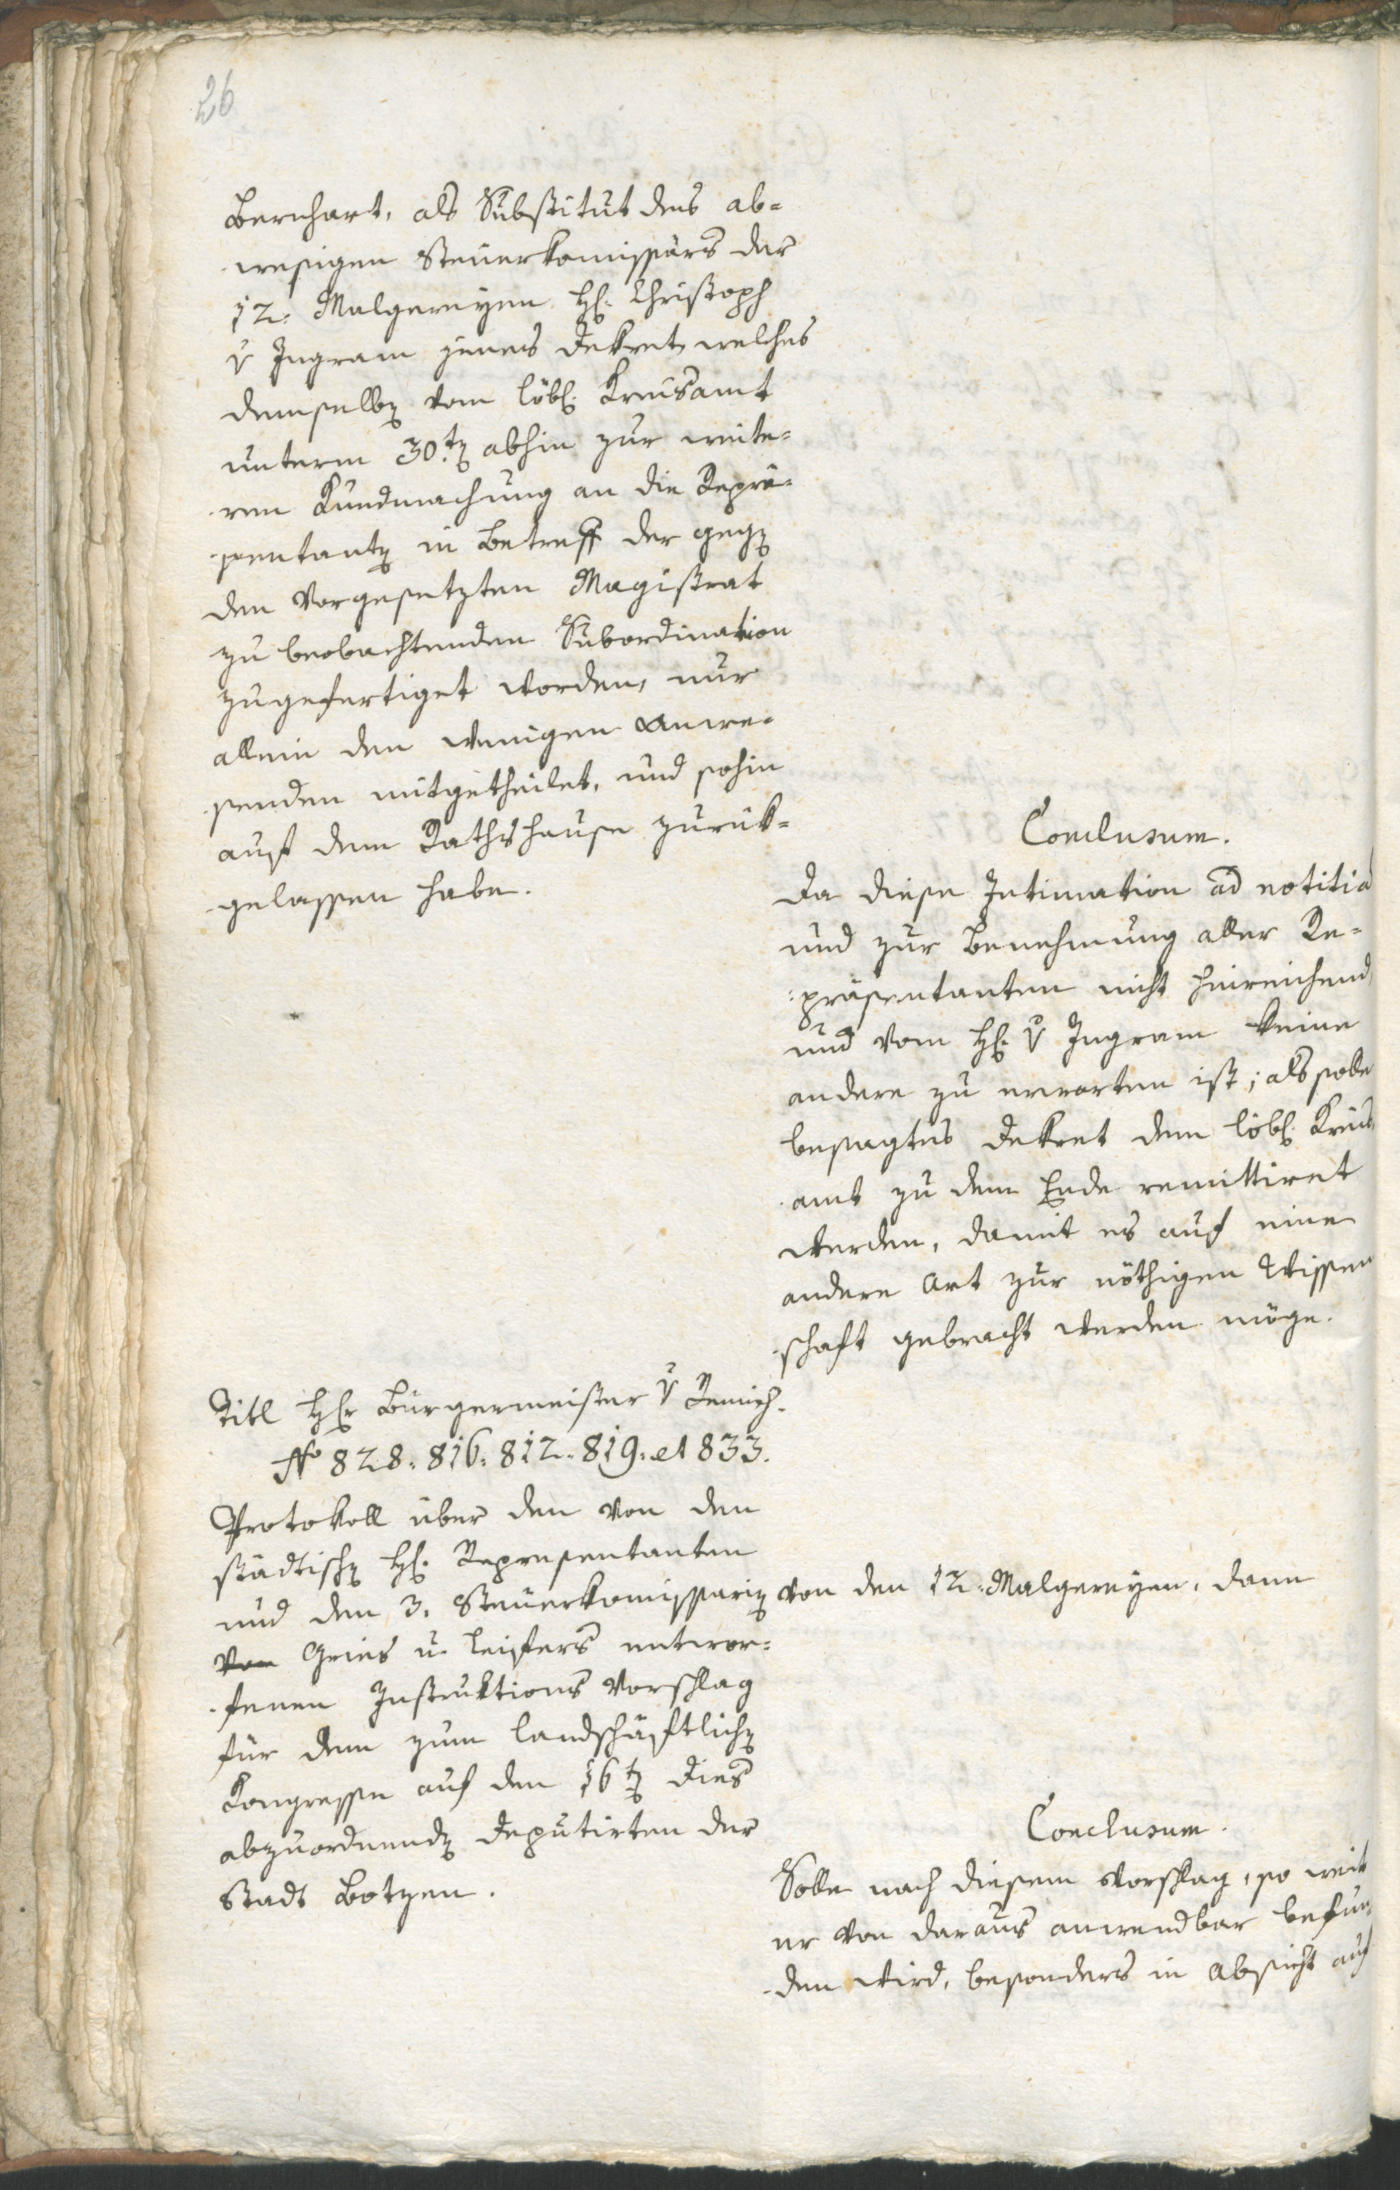 26
Bernhart, als Substitut des ab-
wesigen Steuerkomissärs der
12. Malgereyen H. Christoph
v Ingram jenes Dekret welches
demselb vom löbl. Kreisamt
unterm 30.t abhin zur weite-
ren Kundmachung an die Reprä-
sentant in Betreff der geg
den vorgesetzten Magistrat
zu beobachtenden Subordination
zugefertiget worden, nur
allein den wenigen Anwe-
senden mitgetheilet, und sohin
auf dem Rathshause zurük-
gelassen habe.
Conclusum.
Da diese Intimation ad notitia
und zur Benehmung aller Re-
präsentanten nicht hinreichend,
und vom H. v Ingram keine
andere zu erwarten ist; als solle
besagtes Dekret dem löbl. Kreis
amt zu dem Ende remittiret
werden, damit es auf eine
andere Art zur nöthigen Wissen
schaft gebracht werden möge.
Titl Hr Bürgermeister v Remich.
No 828. 816. 812. 819. et 833.
Protokoll über den von den
städtisch H. Representanten
und den 3. Steuerkomissarien von den 12. Malgereyen, dann
von Gries u. Leifers entwor-
fenen Instruktions Vorschlag
für den zum landschäftlich
Kongresse auf den 16t dies
abzuordnend Deputirten der
Stadt Botzen.
Conclusum.
Solle nach diesem Vorschlag, so weit
er von daraus anwendbar befun-
den wird, besonders in Absicht auf